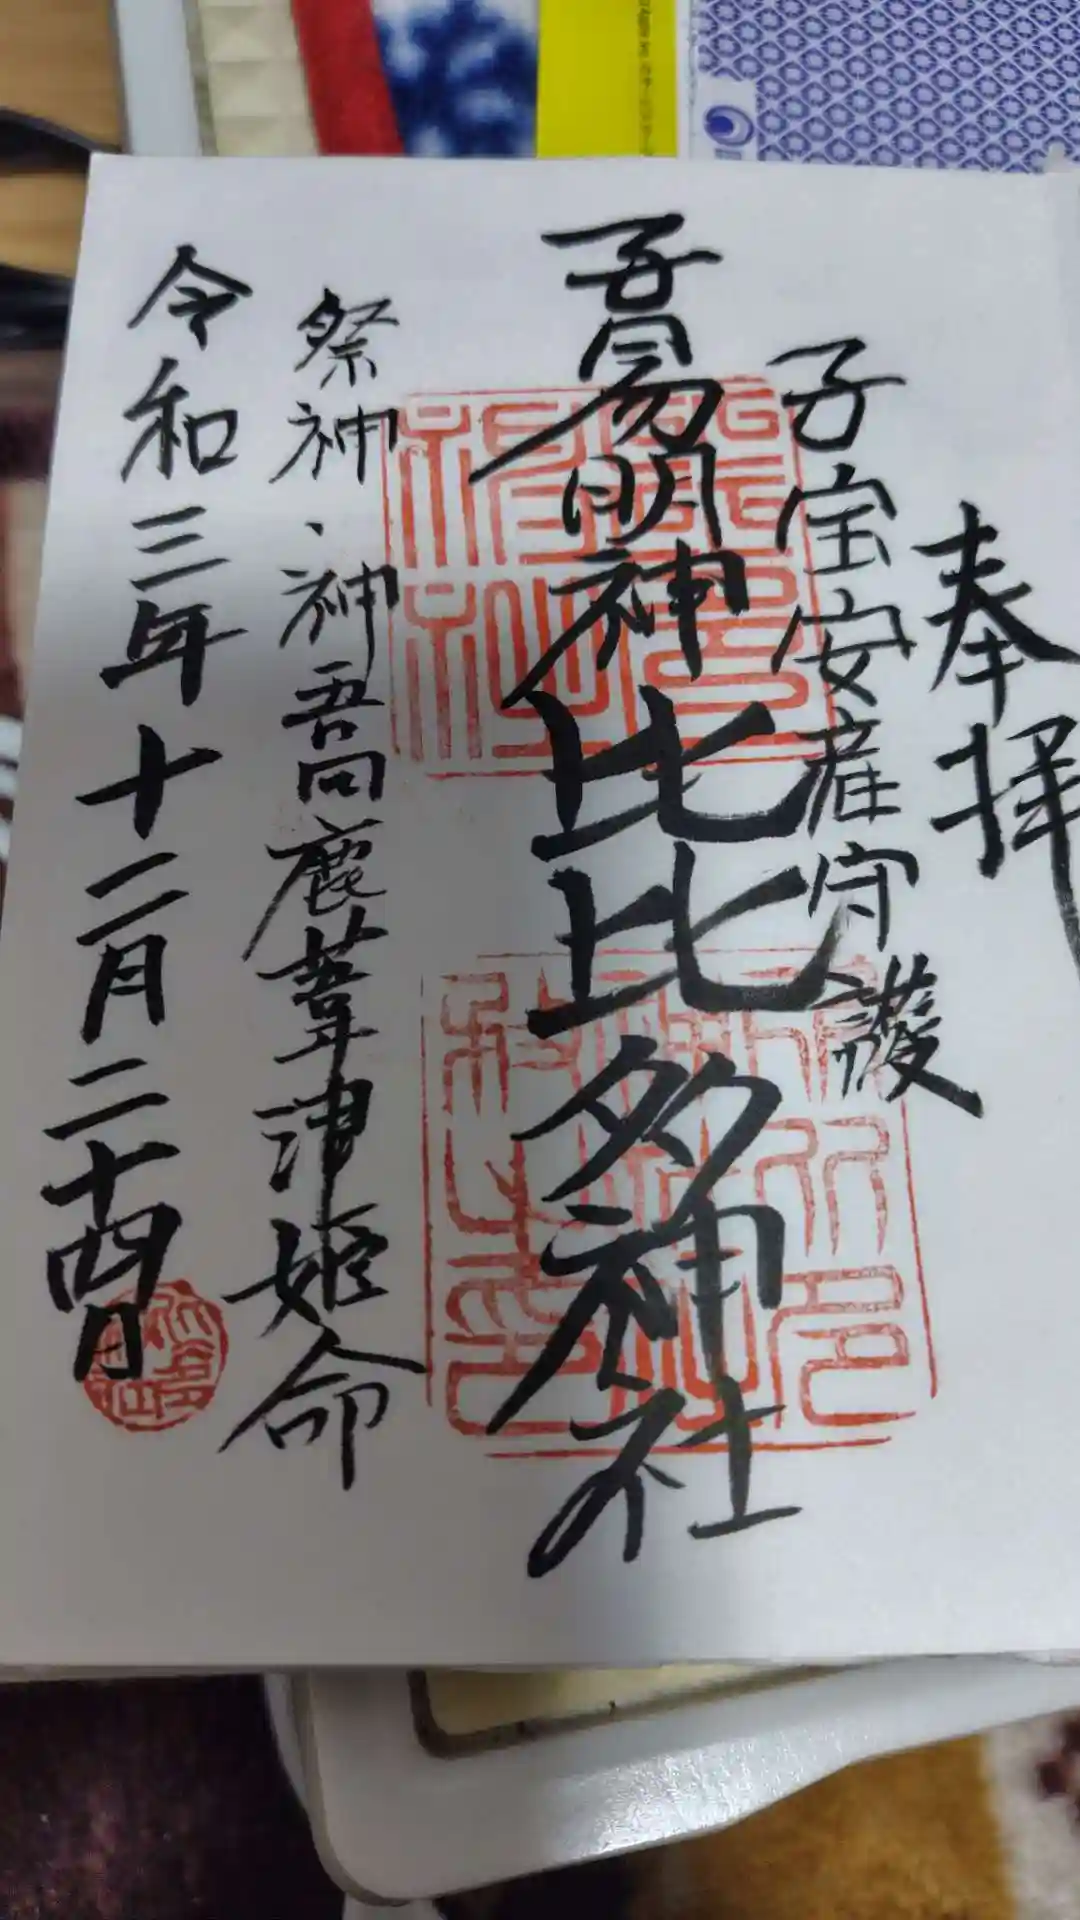 奉拝
子宝安産守護
子易明神比比多神社
祭神、神吾田鹿葦津姫命
令和三年十二月二十四日